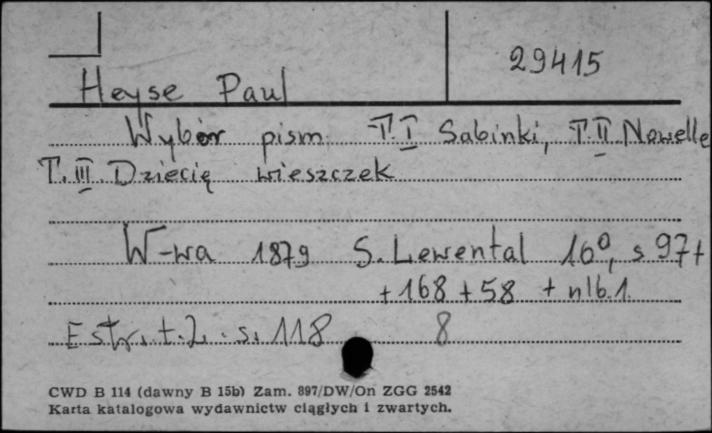 29415
Heyse Paul
Wybór pism T. I Sabinki, T. II Nowelle
T. III. Dziecię wieszczek
W-wa 1879 S. Lewental 16°, s 97+
+168+58 + nlb. 1.
Estr. t. 2. s. 118 8
CWD B 114 (dawny B 15b) Zam. 897/DW/On ZGG 2542
Karta katalogowa wydawnictw ciągłych i zwartych.